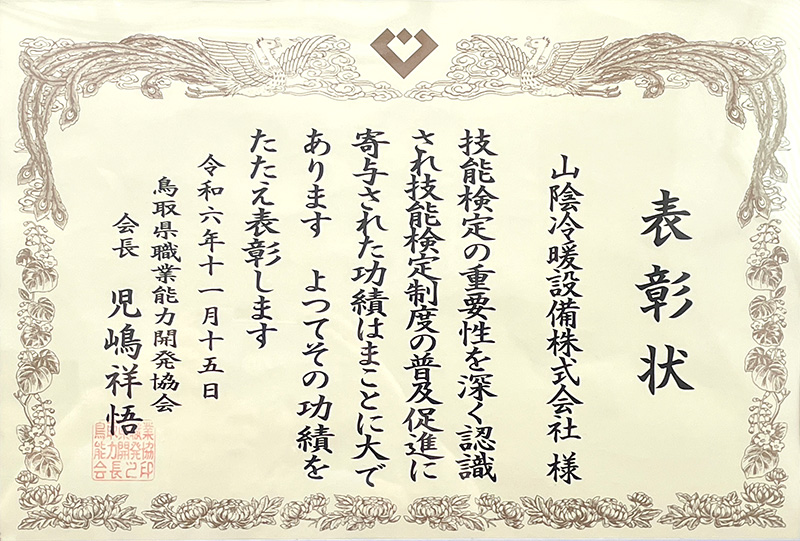 表彰状
山陰冷暖設備株式会社 様
技能検定の重要性を深く認識
され技能検定制度の普及促進に
寄与された功績はまことに大で
あります よつてその功績を
たたえ表彰します
令和六年十一月十五日
鳥取県職業能力開発協会
会長 児嶋祥悟